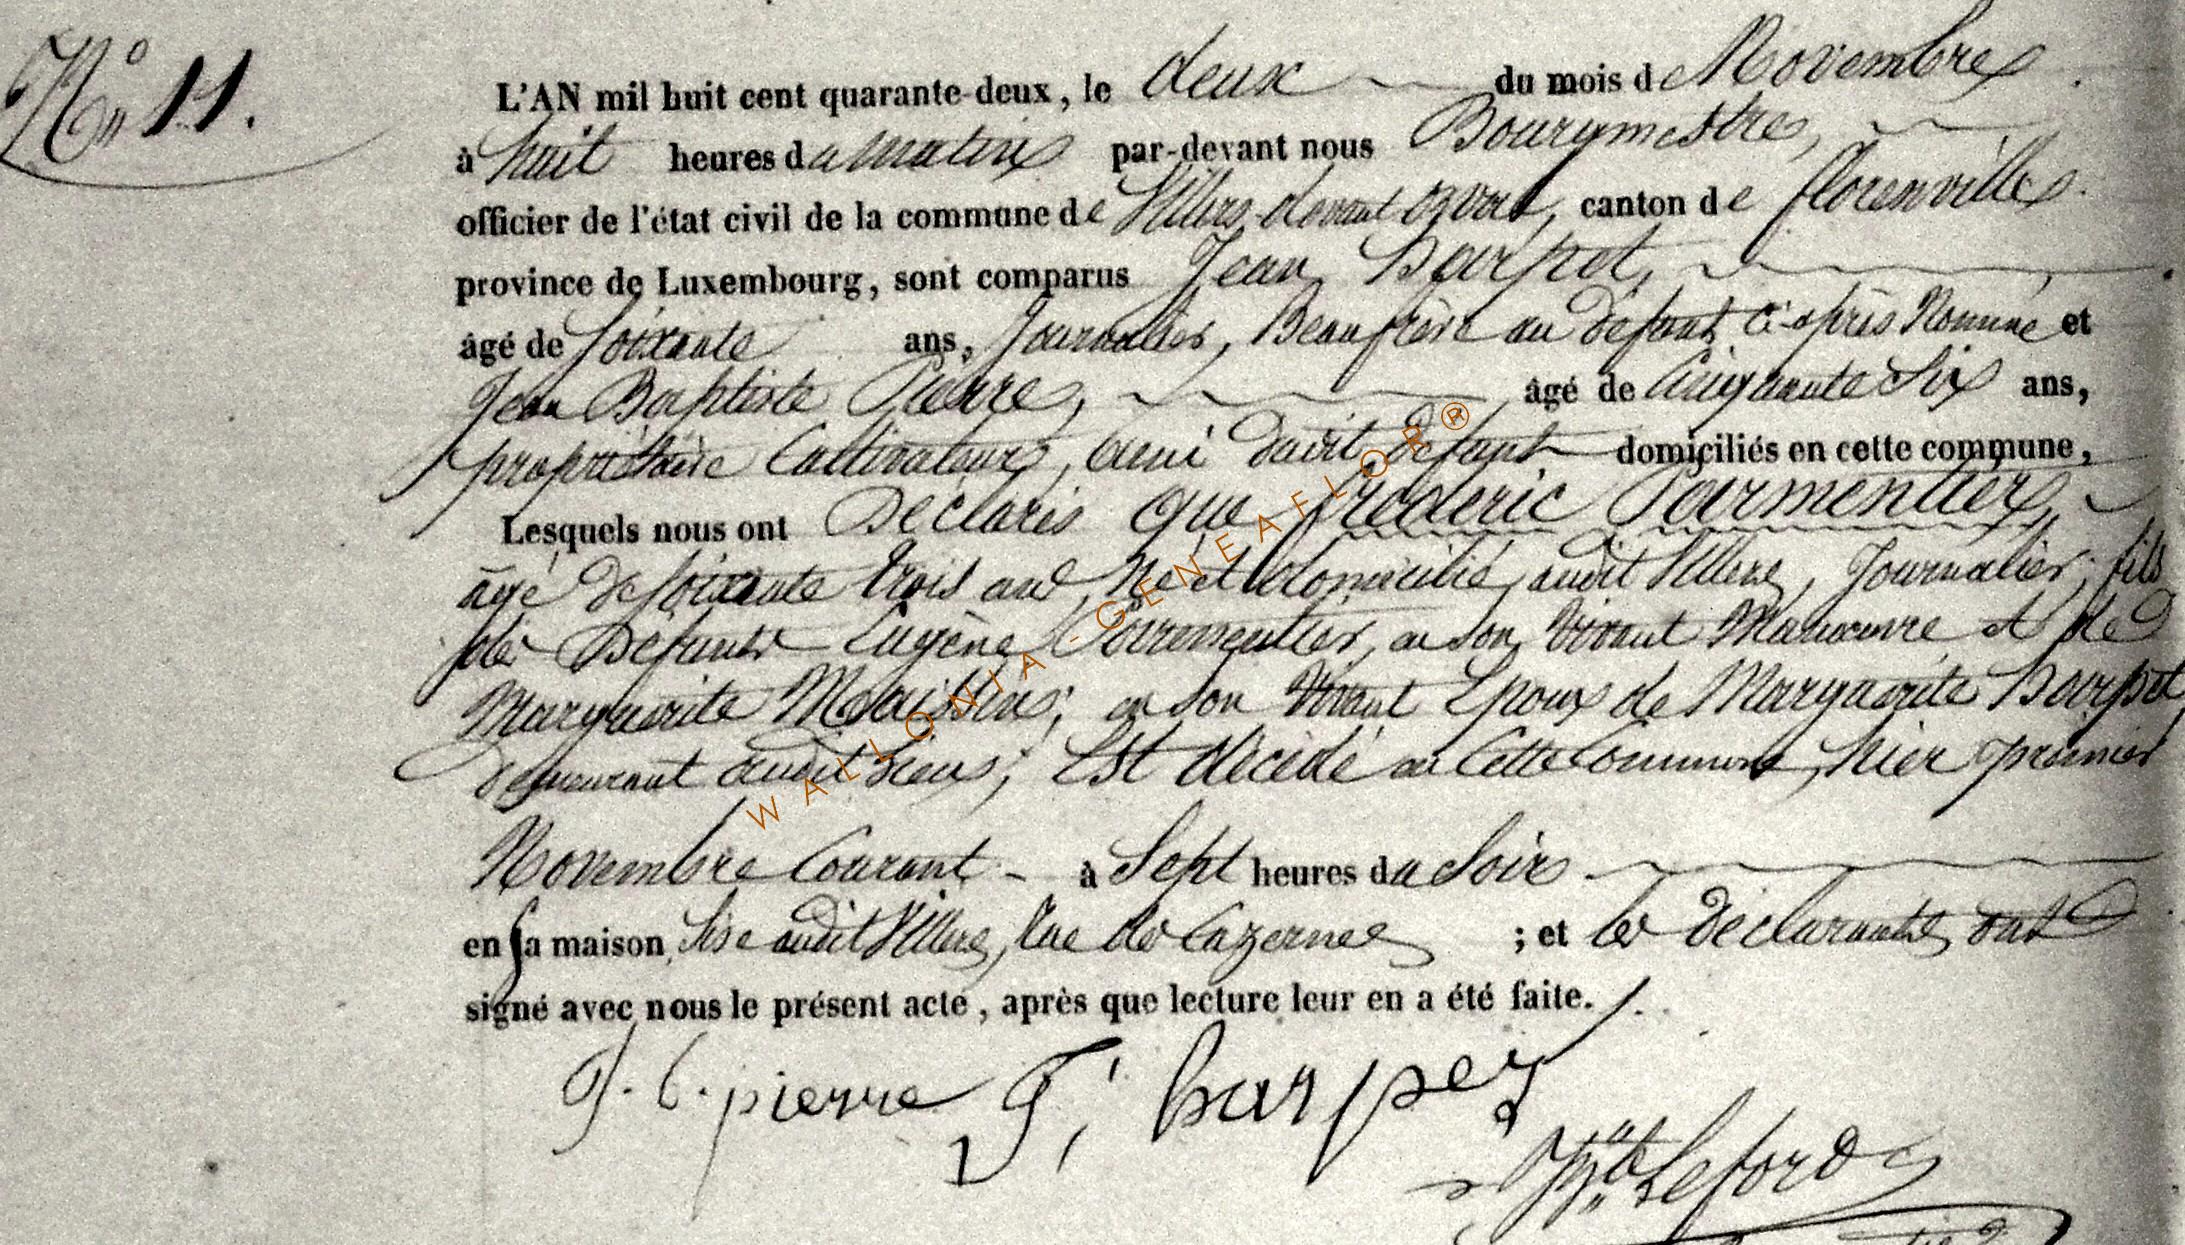 No 11.
L'AN mil huit cent quarante-deux, le deux du mois de Novembre
à huit heures du matin par-devant nous Bourgmestre,
officier de l'état civil de la commune de Villers devant orval, canton de florenville
province de Luxembourg, sont comparus Jean Harpet,
âgé de soixante ans, Journalier, Beaufrère au défunt ci-après Nommé et
Jean Baptiste Pierre, âgé de Cinquante Six ans,
propriétaire Cultivateur, ami dudit défunt domiciliés en cette commune,
Lesquels nous ont Déclaré que fréderic Parmentier,
âgé de soixante trois ans, Né et domicilié audit Villers, Journalier, fils
de Défunts Eugène Parmentier, en son vivant Manœuvre et de
Marguerite ; en son vivant Epoux de Marguerite Harpet
demeurant audit lieu; Est décédé en Cette Commune, hier premier
Novembre Courant - à Sept heures du Soir
en sa maison sise audit Villers, rue de Cazernes ; et les déclarants ont
signé avec nous le présent acte, après que lecture leur en a été faite./.
J. b. pierre J, harpet
Leford
WALLONIA - GENEAFLOR®